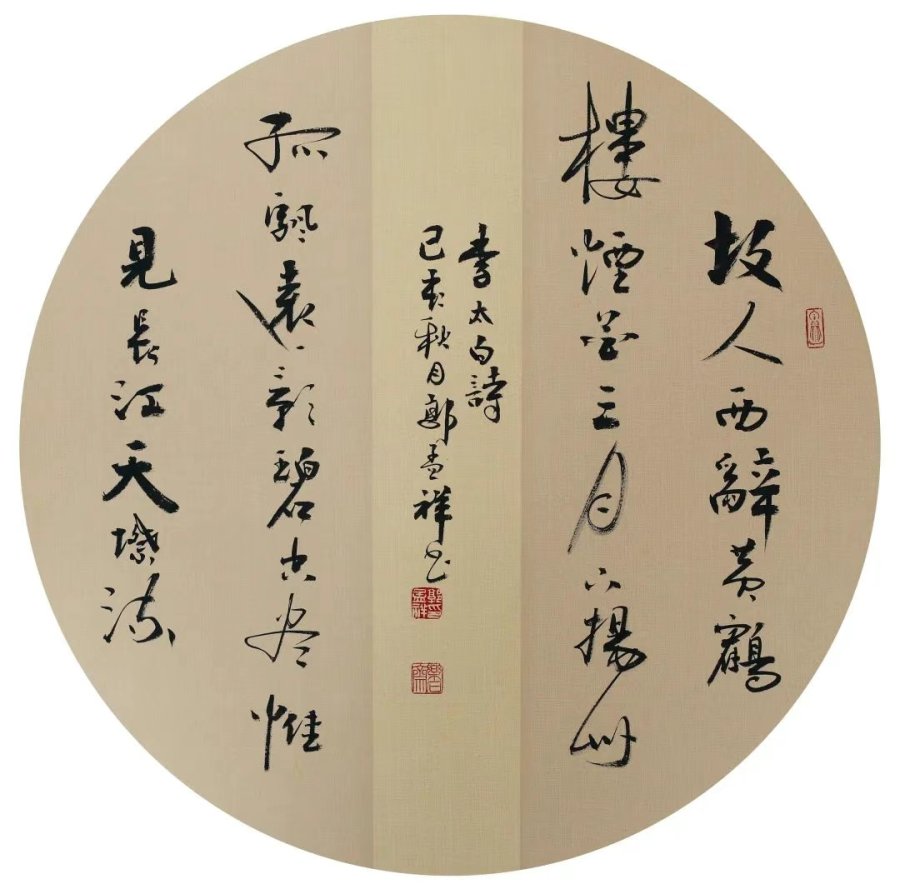 故人西辭黄鶴
樓煙花三月下揚州
孤颿遠影碧空盡惟
見長江天際流
李太白詩
己亥秋月鄭孟祥书